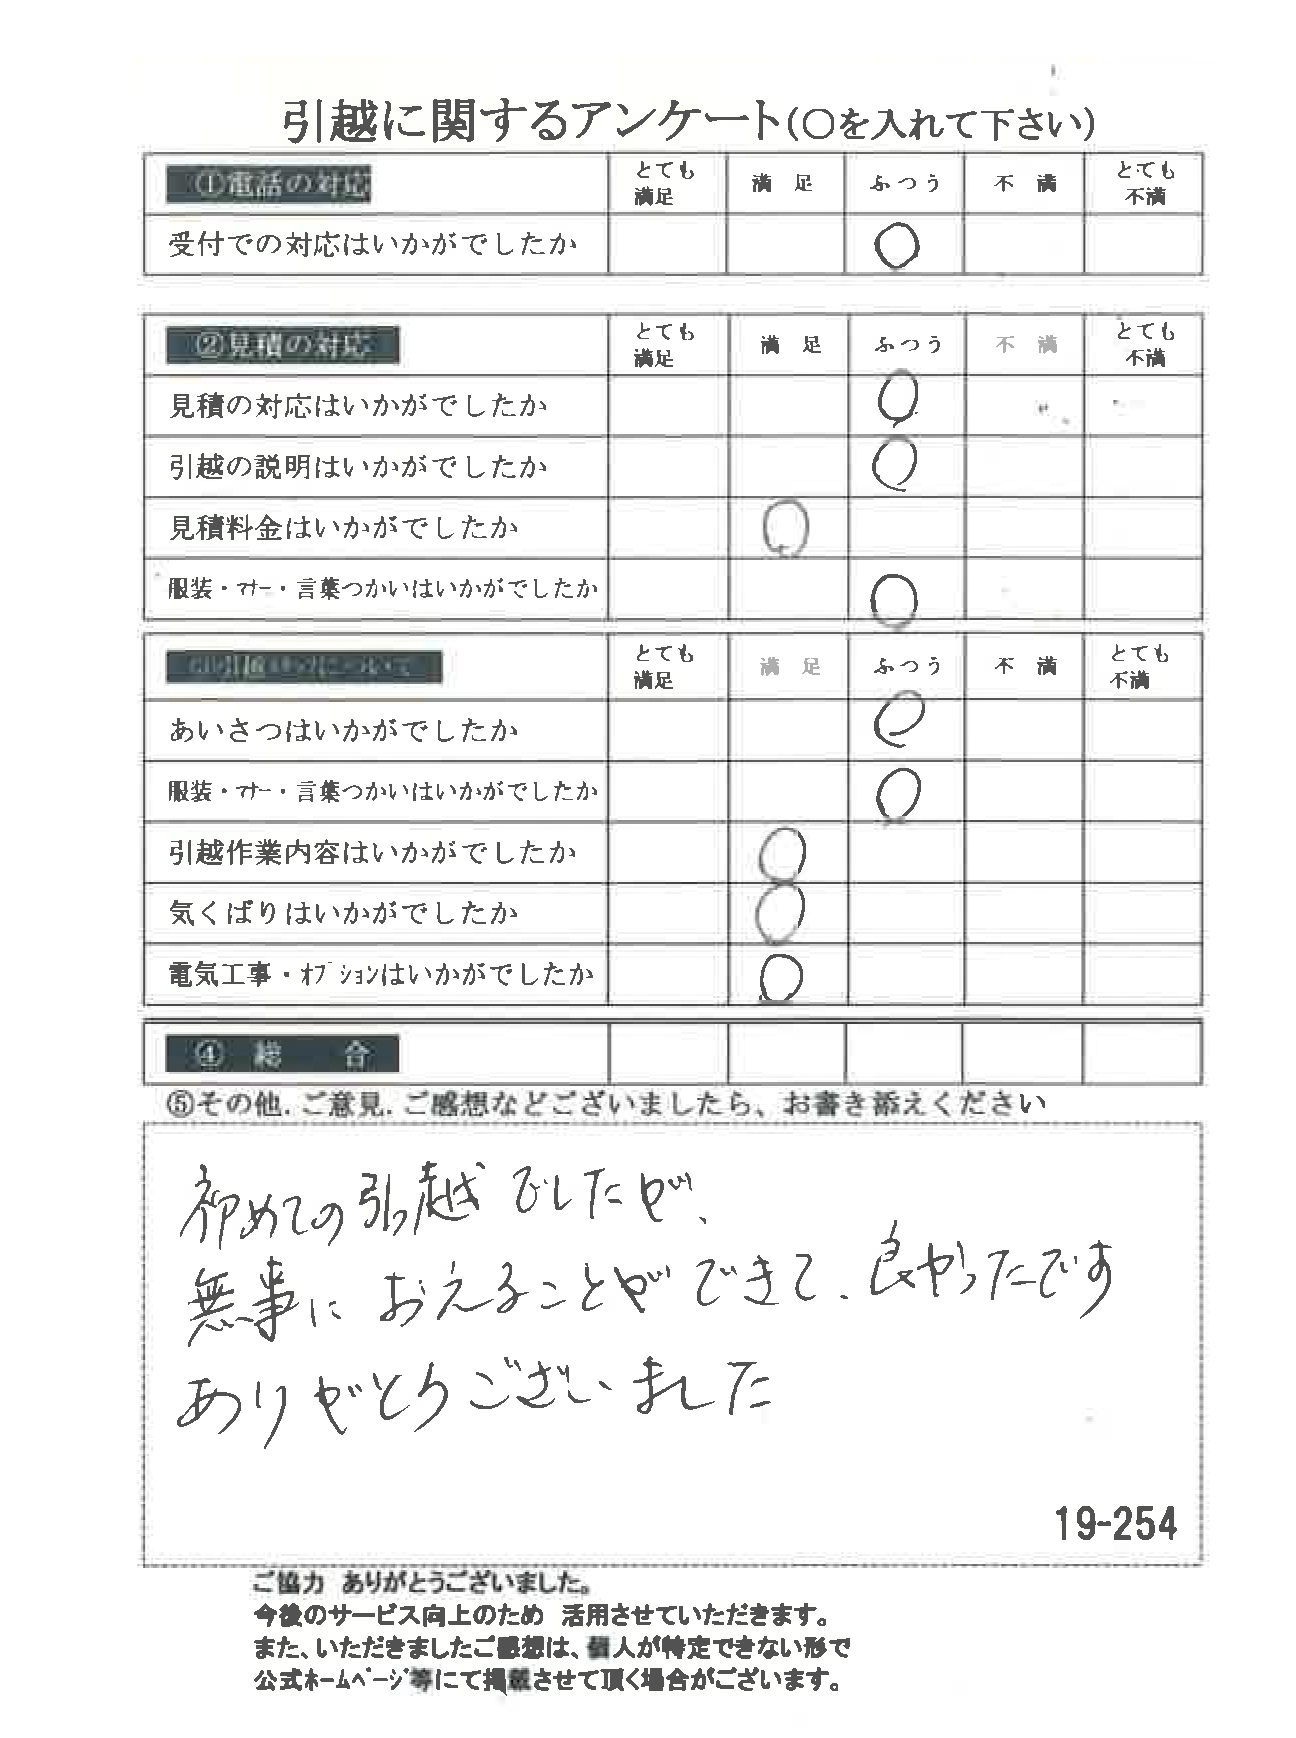 引越に関するアンケート(○を入れて下さい)
①電話の対応 とても満足 満足 ふつう 不満 とても不満
受付での対応はいかがでしたか ○
②見積の対応 とても満足 満足 ふつう 不満 とても不満
見積の対応はいかがでしたか ○
引越の説明はいかがでしたか ○
見積料金はいかがでしたか ○
服装・マナー・言葉つかいはいかがでしたか ○
とても満足 満足 ふつう 不満 とても不満
あいさつはいかがでしたか ○
服装・マナー・言葉つかいはいかがでしたか ○
引越作業内容はいかがでしたか ○
気くばりはいかがでしたか ○
電気工事・オプションはいかがでしたか ○
④総合
⑤その他.ご意見.ご感想などございましたら、お書き添えください
初めての引越でしたが、
無事におえることができて、良かったです
ありがとうございました
19-254
ご協力 ありがとうございました。
今後のサービス向上のため 活用させていただきます。
また、いただきましたご感想は、個人が特定できない形で
公式ホームページ等にて掲載させて頂く場合がございます。